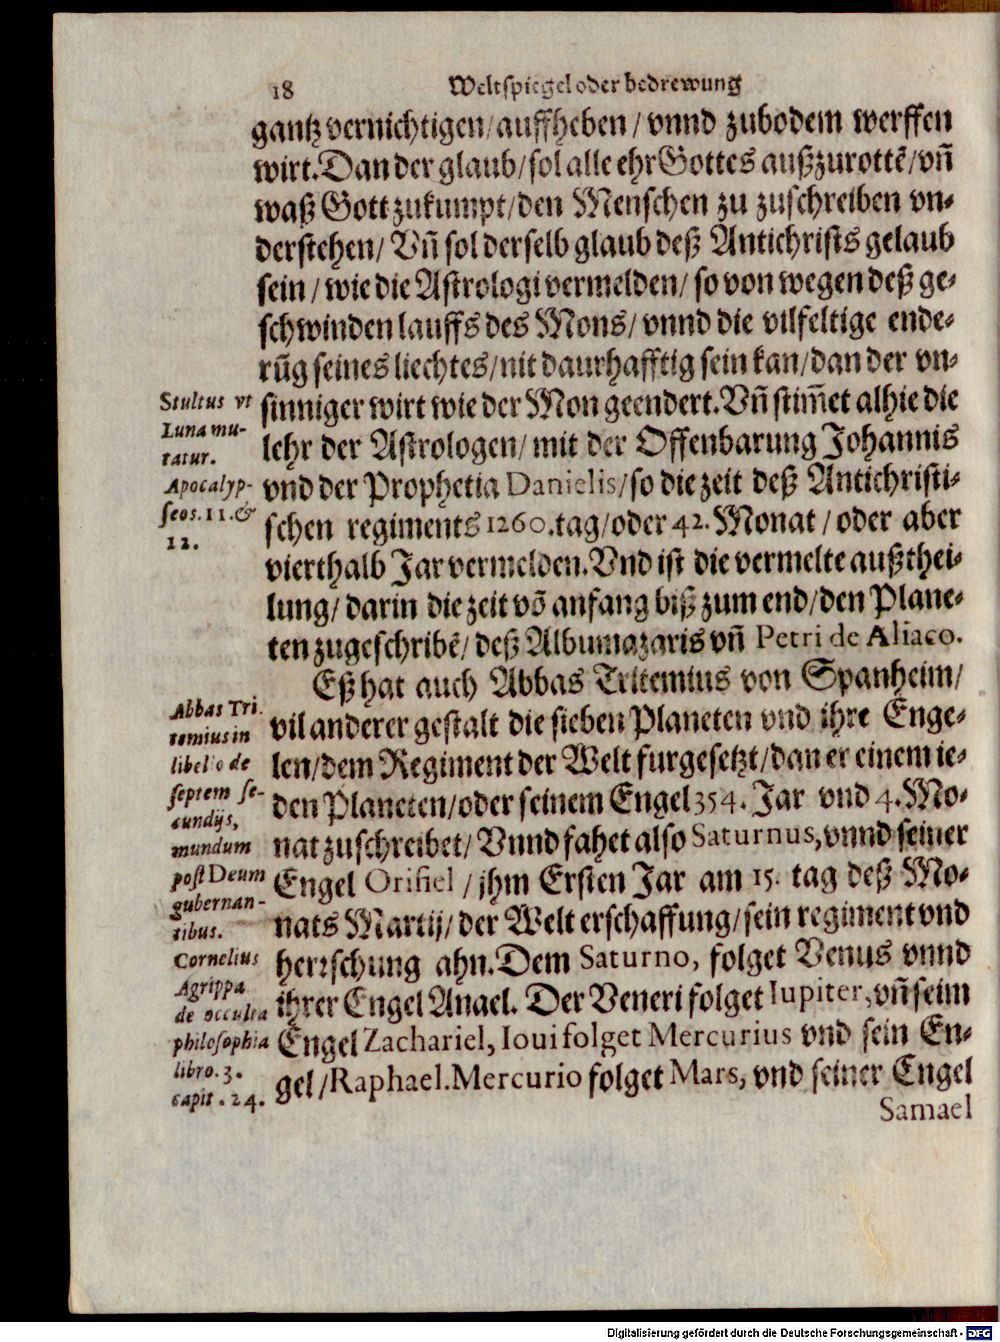 18 Weltspiegel oder bedrewung
gantz vernichtigen/auffheben/vnnd zubodem werffen
wirt. Dan der glaub/sol alle ehr Gottes außzurottẽ/vñ
waß Gott zukumpt/den Menschen zu zuschreiben vn-
derstehen/Vñ sol derselb glaub deß Antichrists gelaub
sein/wie die Astrologi vermelden/so von wegen deß ge-
schwinden lauffs des Mons/vnnd die vilfeltige ende-
rũg seines liechtes/nit daurhafftig sein kan/dan der vn-
sinniger wirt wie der Mon geendert. Vñ stim̃et alhie die
lehr der Astrologen/mit der Offenbarung Johannis
vnd der Prophetia Danielis/so die zeit deß Antichristi-
schen regiments 1260.tag/oder 42. Monat/oder aber
vierthalb Jar vermelden. Vnd ist die vermelte außthei-
lung/darin die zeit võ anfang biß zum end/den Plane-
ten zugeschribẽ/deß Albumazaris vñ Petri de Aliaco.
Stultus vt
Luna mu-
tatur.
Apocalyp-
seos. 11. &
12.
Eß hat auch Abbas Tritemius von Spanheim/
vil anderer gestalt die sieben Planeten vnd ihre Enge-
len/dem Regiment der Welt furgesetzt/dan er einem ie-
den Planeten/oder seinem Engel 354. Jar vnd 4. Mo-
nat zuschreibet/Vnnd fahet also Saturnus, vnnd seiner
Engel Orifiel/jhm Ersten Jar am 15. tag deß Mo-
nats Martij/der Welt erschaffung/sein regiment vnd
herrschung ahn. Dem Saturno, folget Venus vnnd
ihrer Engel Anael. Der Veneri folget Iupiter, vñ seim
Engel Zachariel, Ioui folget Mercurius vnd sein En-
gel/Raphael. Mercurio folget Mars, vnd seiner Engel
Abbas Tri.
temius in
libello de
septem se-
cundijs,
mundum
post Deum
gubernan-
tibus.
Cornelius
Agrippa
de occulta
philosophia
libro. 3.
capit. 24.
Samael
Digitalisierung gefördert durch die Deutsche Forschungsgemeinschaft - DFG